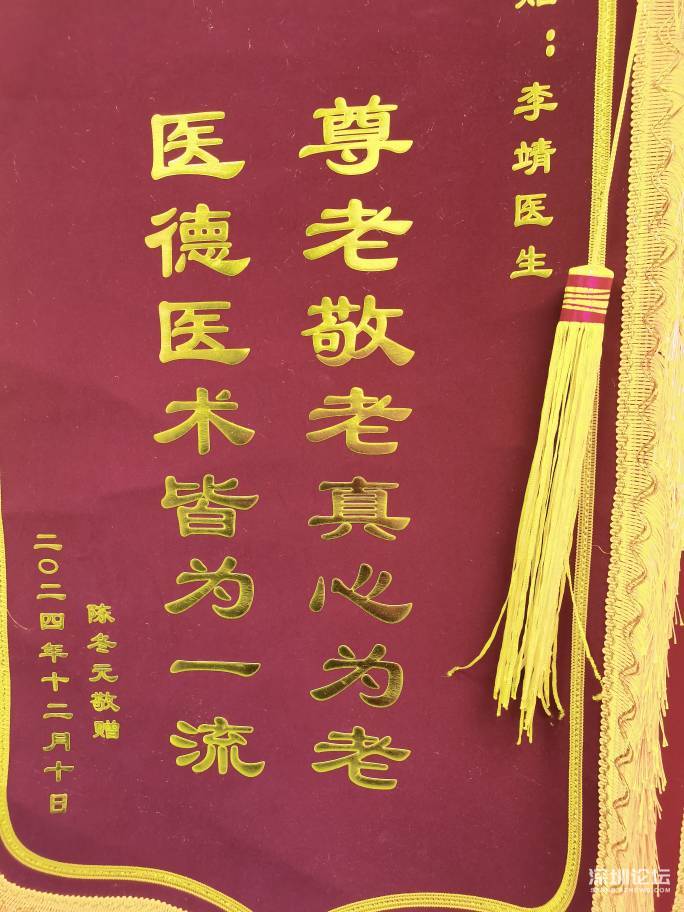 ：李靖医生
尊老敬老真心为老
医德医术皆为一流
陈冬元敬赠
二〇二四年十二月十日
深圳论坛